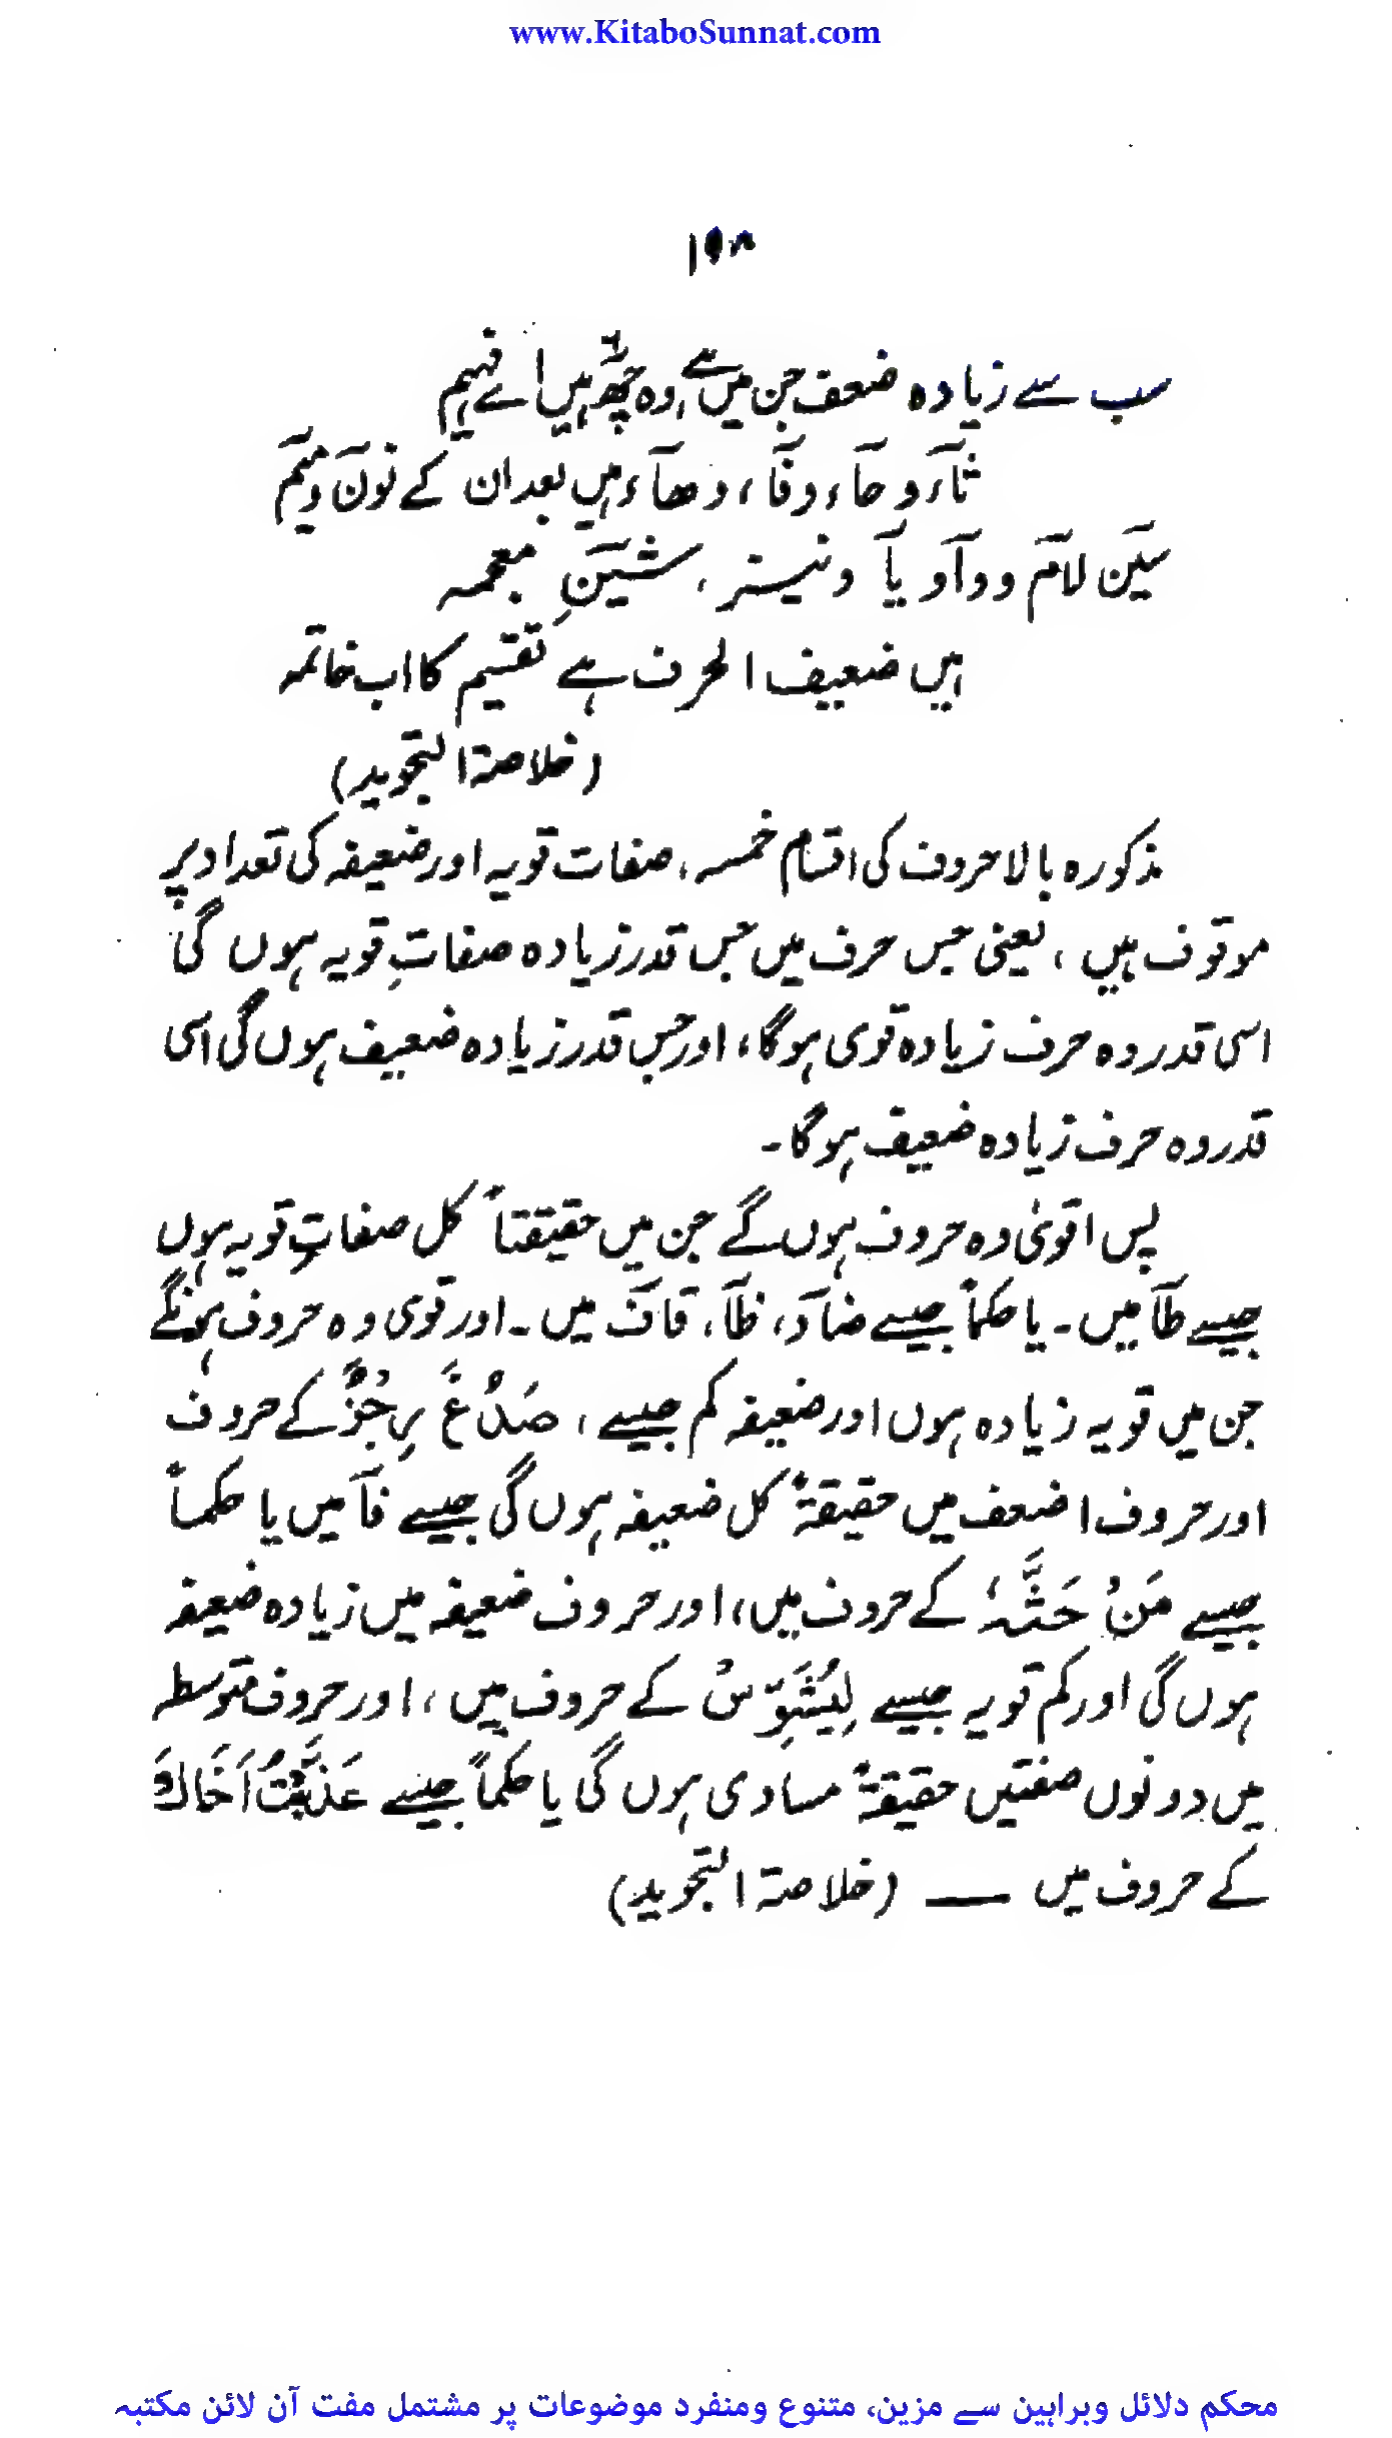 www.KitaboSunnat.com
۱۹۸
سب سے زیادہ ضعف جن میں ہے، وہ چھ ہیں اے فہیم
ثآء، و حآء، و فآء، و ھآء، ہیں بعد ان کے نونؔ و میمؔ
سینؔ لامؔ و وآو یآ و نیستر، شینِؔ معجمہ
ہیں ضعیف الحرف ہے تقسیم کا اب خاتمہ
(خلاصۃ التجوید)
مذکورہ بالا حروف کی اقسام خمسہ، صفات قویہ اور ضعیفہ کی تعداد پر
موقوف ہیں، یعنی جس حرف میں جس قدر زیادہ صفاتِ قویہ ہوں گی
اسی قدر وہ حرف زیادہ قوی ہوگا، اور جس قدر زیادہ ضعیف ہوں گی اسی
قدر وہ حرف زیادہ ضعیف ہوگا۔
پس اقویٰ وہ حروف ہوں گے جن میں حقیقتاً کل صفاتِ قویہ ہوں
جیسے طآ میں۔ یا حکماً جیسے ضآد، ظآ، قاف میں۔ اور قوی وہ حروف ہونگے
جن میں قویہ زیادہ ہوں اور ضعیفہ کم جیسے، صَدْغٌ بِرِجُزٍ کے حروف
اور حروف اضعف میں حقیقۃً کل ضعیفہ ہوں گی جیسے فآ میں یا حکماً
جیسے مَنْ حَثَّہٗ کے حروف میں، اور حروف ضعیفہ میں زیادہ ضعیفہ
ہوں گی اور کم قویہ جیسے لِیُشَوِّسْ کے حروف میں، اور حروف متوسطہ
میں دونوں صفتیں حقیقۃً مساوی ہوں گی یا حکماً جیسے عَذَّبْتُ اَخَاكَ
کے حروف میں — (خلاصۃ التجوید)
محکم دلائل وبراہین سے مزین، متنوع ومنفرد موضوعات پر مشتمل مفت آن لائن مکتبہ